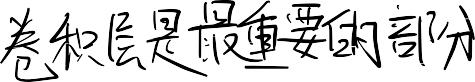 卷积层是最重要的部分